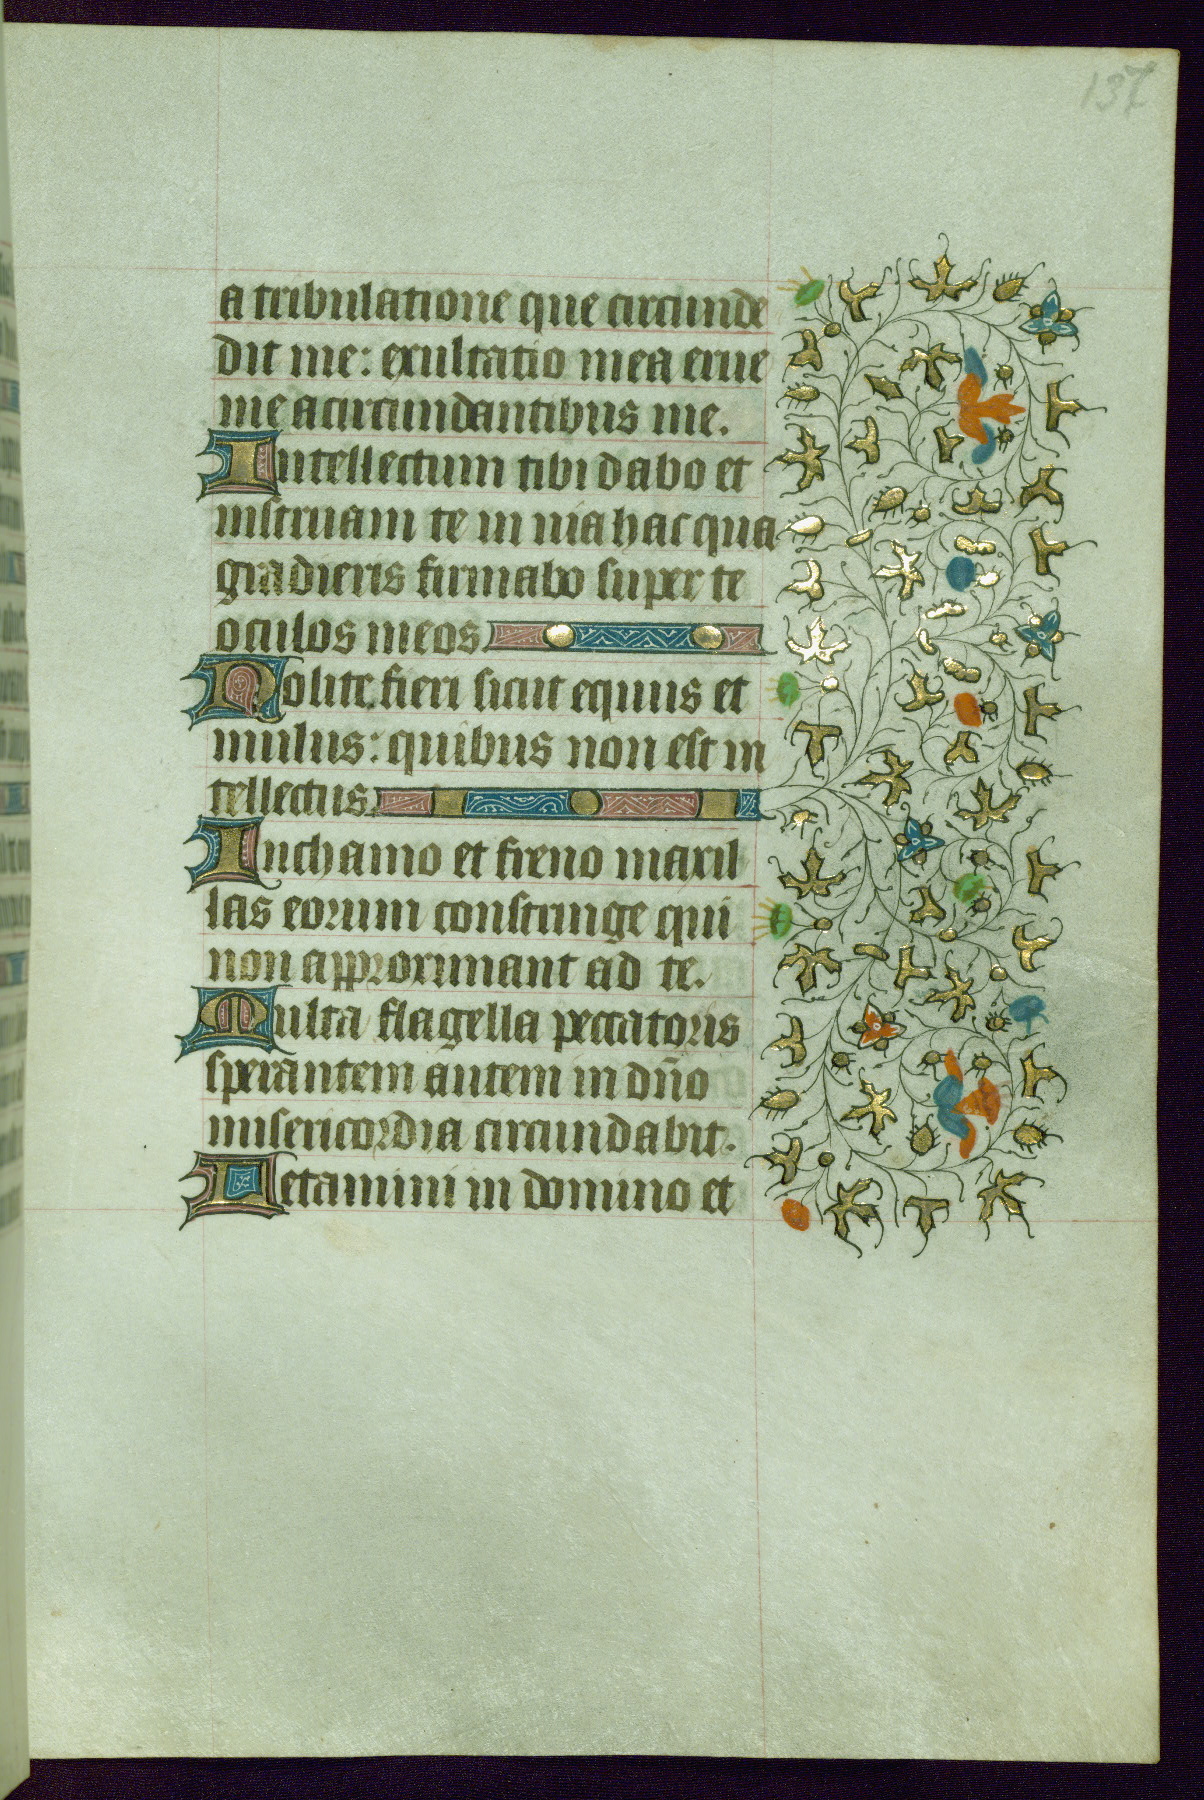 137
a tribulatione que circunde
dit me: exultatio mea erue
me acircundantibus me.
Intellectum tibi dabo et
instruam te in uia hac qua
gradieris firmabo super te
oculos meos
Nolite fieri sicut equus et
mulus: quibus non est in
tellectus
Inchamo et freno maxil
las eorum constringe qui
non approximant ad te.
Multa flagella peccatoris
sperantem autem in dño
misericordia circundabit.
Letamini in domino et